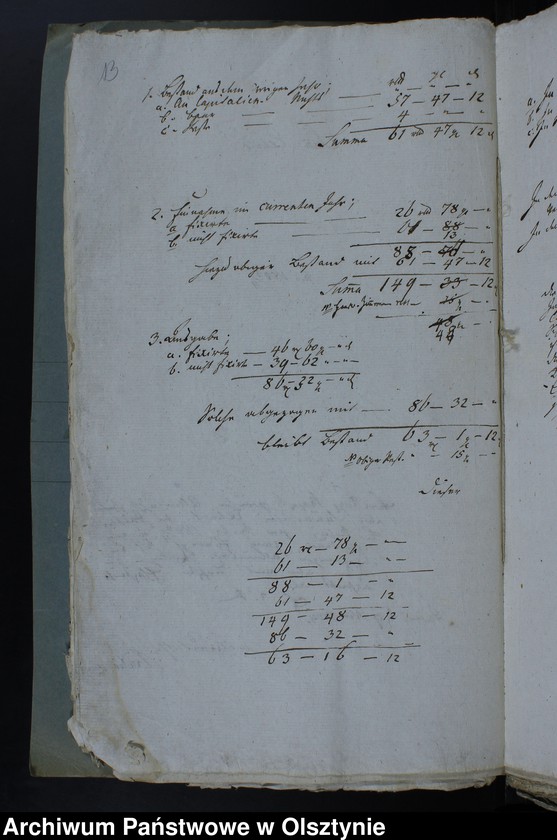 13
1. Bestand aus dem vorigen Jahr;
a. An Capitalien Nichts
b. baar 57 – 47 – 12
c. Reste 4 – " – "
Summa 61 rtl 47 gr 12
2. Einnahme im currenten Jahr;
a. fixirte 26 rtl 78 gr – "
b. nicht fixirte 61 – 88 – "
13
88 – "
hiezu obiger Bestand mit 61 – 47 – 12
Summa 149 – 33 – 12
48
3. Ausgabe;
a. fixirte – 46 rtl 60 gr
b. nicht fixirte – 39 – 62 –
86 – 32
Solche abgezogen mit 86 – 32 – "
bleibt Bestand 63 – 1 – 12
obiger Rest. " – 15 gr
Dieser
26 – 78 – –
61 – 13 – –
88 – 1 – "
61 – 47 – 12
149 – 48 – 12
86 – 32 – "
63 – 16 – 12
Archiwum Państwowe w Olsztynie